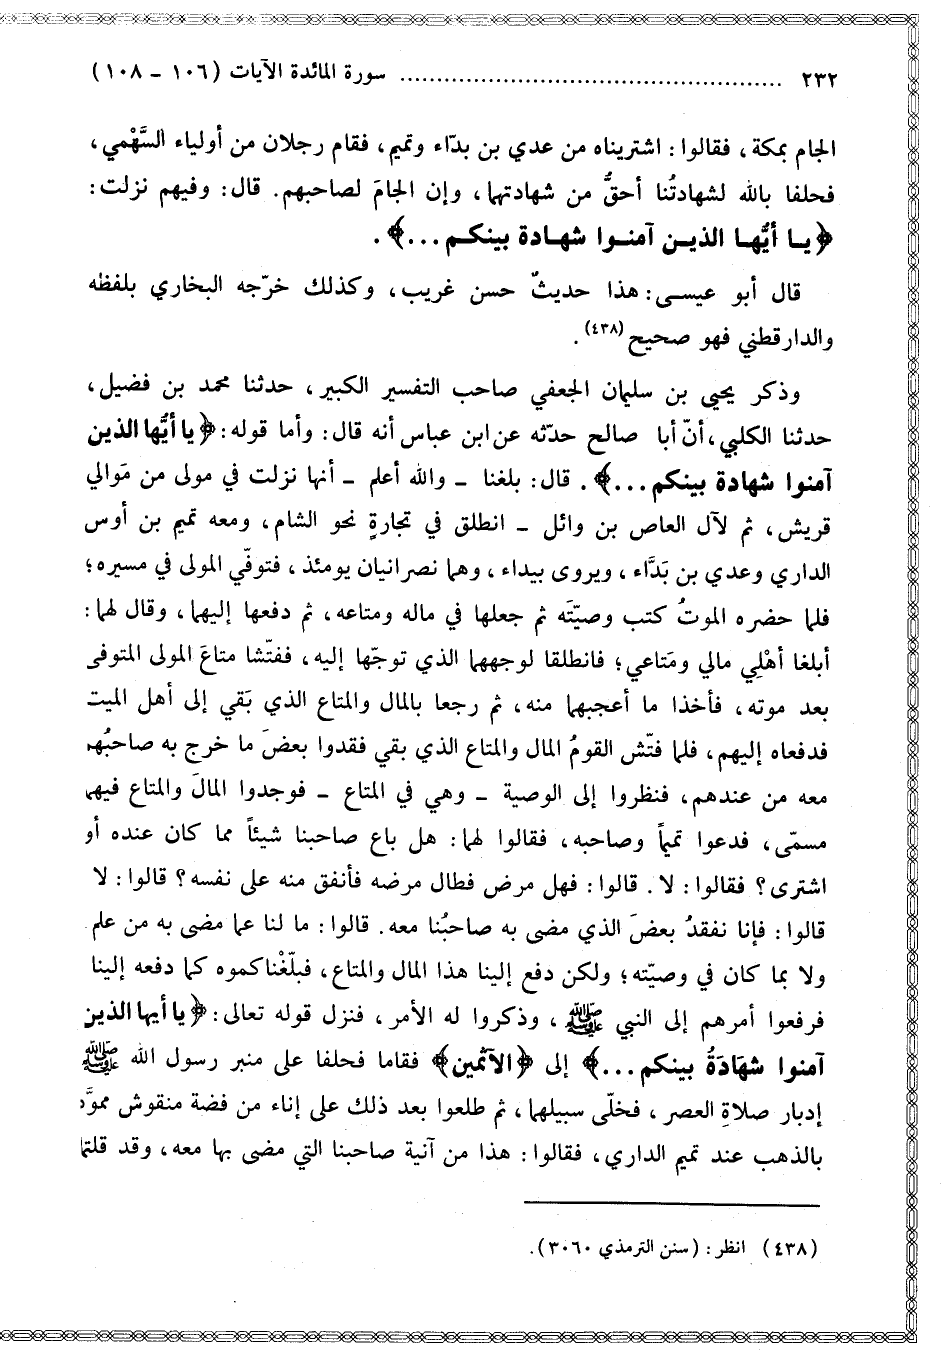 ٢٣٢ ........................................................ سورة المائدة الآيات (١٠٦ - ١٠٨)
الجام بمكة، فقالوا: اشتريناه من عدي بن بدّاء وتميم، فقام رجلان من أولياء السَّهْمي،
فحلفا بالله لشهادتُنا أحقُّ من شهادتهما، وإن الجامَ لصاحبهم. قال: وفيهم نزلت:
﴿يا أيُّها الذين آمنوا شهادة بينكم...﴾.
قال أبو عيسى: هذا حديثٌ حسن غريب، وكذلك خرّجه البخاري بلفظه
والدارقطني فهو صحيح(٤٣٨).
وذكر يحيى بن سليمان الجعفي صاحب التفسير الكبير، حدثنا محمد بن فضيل،
حدثنا الكلبي، أنّ أبا صالح حدّثه عن ابن عباس أنه قال: وأما قوله: ﴿يا أيُّها الذين
آمنوا شهادة بينكم...﴾. قال: بلغنا - والله أعلم - أنها نزلت في مولى من مَوالي
قريش، ثم لآل العاص بن وائل - انطلق في تجارةٍ نحو الشام، ومعه تميم بن أوس
الداري وعدي بن بَدَّاء، ويروى بيداء، وهما نصرانيان يومئذ، فتوفّي المولى في مسيره؛
فلما حضره الموتُ كتب وصيّتَه ثم جعلها في ماله ومتاعه، ثم دفعها إليهما، وقال لهما:
أبلغا أهْلِي مالي ومَتاعي؛ فانطلقا لوجههما الذي توجّها إليه، ففتّشا متاعَ المولى المتوفى
بعد موته، فأخذا ما أعجبهما منه، ثم رجعا بالمال والمتاع الذي بَقي إلى أهل الميت
فدفعاه إليهم، فلما فتّش القومُ المال والمتاع الذي بقي فقدوا بعضَ ما خرج به صاحبُهم
معه من عندهم، فنظروا إلى الوصية - وهي في المتاع - فوجدوا المالَ والمتاع فيهما
مسمّى، فدعوا تميماً وصاحبه، فقالوا لهما: هل باع صاحبنا شيئاً مما كان عنده أو
اشترى؟ فقالوا: لا. قالوا: فهل مرض فطال مرضه فأنفق منه على نفسه؟ قالوا: لا
قالوا: فإنا نفقدُ بعضَ الذي مضى به صاحبُنا معه. قالوا: ما لنا عما مضى به من علم
ولا بما كان في وصيّته؛ ولكن دفع إلينا هذا المال والمتاع، فبلّغْناكموه كما دفعه إلينا
فرفعوا أمرهم إلى النبي ﷺ، وذكروا له الأمر، فنزل قوله تعالى: ﴿يا أيها الذين
آمنوا شهَادَةُ بينكم...﴾ إلى ﴿الآثمين﴾ فقاما فحلفا على منبر رسول الله ﷺ
إدبار صلاةِ العصر، فخلّى سبيلهما، ثم طلعوا بعد ذلك على إناء من فضة منقوش مموَّه
بالذهب عند تميم الداري، فقالوا: هذا من آنية صاحبنا التي مضى بها معه، وقد قلتما
(٤٣٨) انظر: (سنن الترمذي ٣٠٦٠).